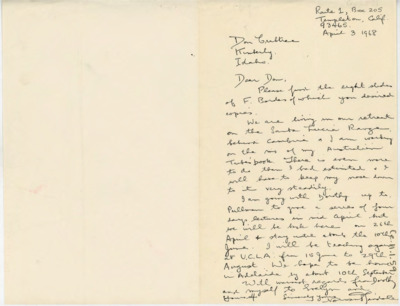 Route 1, Box 205
Templeton, Calif.
93465
April 3 1968
Don Crabtree
Kimberly
Idaho.
Dear Don,
Please find the eight slides
of F. Bordes of which you desired
copies.
We are living in our retreat
on the Santa Lucia Range
behind Cambria & I am working
on the ms of my Australian
There is even more
to do than I had estimated &
will have to keep my nose down
to it very steadily.
I am going with Dorothy up to
Pullman to give a series of four
days lectures in mid April but
we will be back here on 26th
April & stay until about the 10th
June. I will be teaching again
at U.C.L.A. from 18 June to 29th
August. We hope to be home
in Adelaide by about 10th September
With warmest regards from Dorothy
and myself to Evelyn and
yourself Sincerely